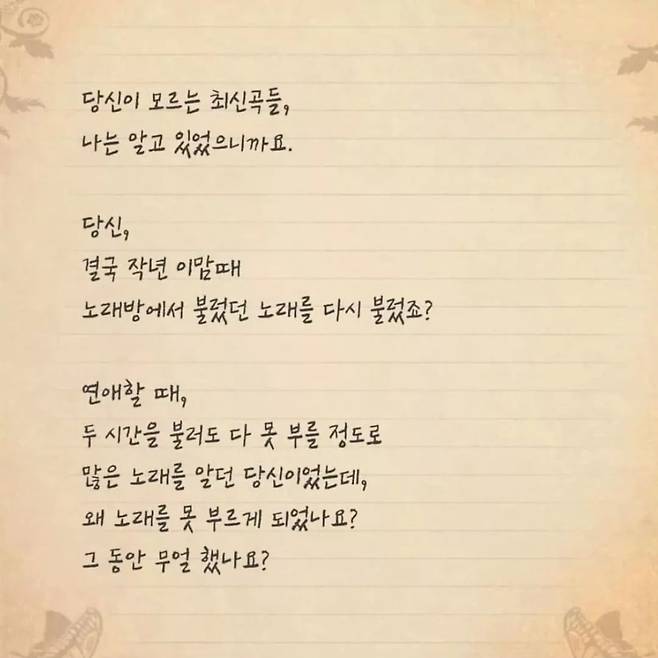 당신이 모르는 최신곡들,
나는 알고 있었으니까요.
당신,
결국 작년 이맘때
노래방에서 불렀던 노래를 다시 불렀죠?
연애할 때,
두 시간을 불러도 다 못 부를 정도로
많은 노래를 알던 당신이었는데,
왜 노래를 못 부르게 되었나요?
그 동안 무얼 했나요?